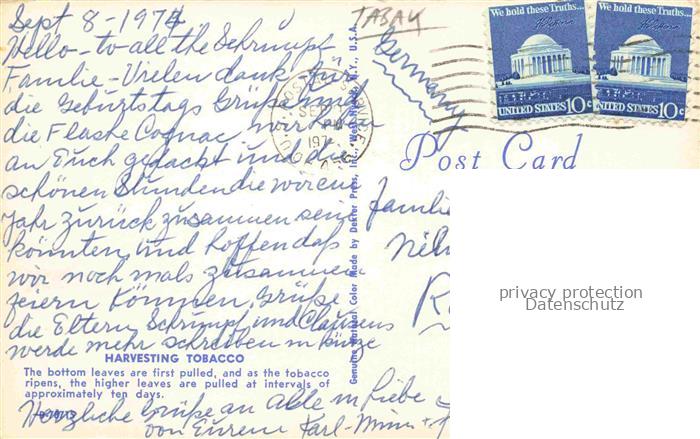 Sept 8-1974
Hello - to all the Schrumpf
Familie - Vielen dank für
die Geburtstags Grüße und
die Flashe Cognac, wir haben
an Euch gedacht und die
schönen Stunden die wor ein
Jahr zurück zusammen sein
könnten und hoffen daß
wir noch mals zusammen
feiern können, Grüße
die Eltern Schrumpf und Clausens
werde mehr schreiben in kürze
HARVESTING TOBACCO
The bottom leaves are first pulled, and as the tobacco
ripens, the higher leaves are pulled at intervals of
approximately ten days.
Herzliche Grüße an alle in Liebe
von Eurem Karl-
Genuine Natural Color Made by Dexter Press, Inc., West Nyack, N.Y., U.S.A.
TABAK
Germany
We hold these Truths...
UNITED STATES 10c
We hold these Truths...
UNITED STATES 10c
Post Card
Famili
privacy protection
Datenschutz